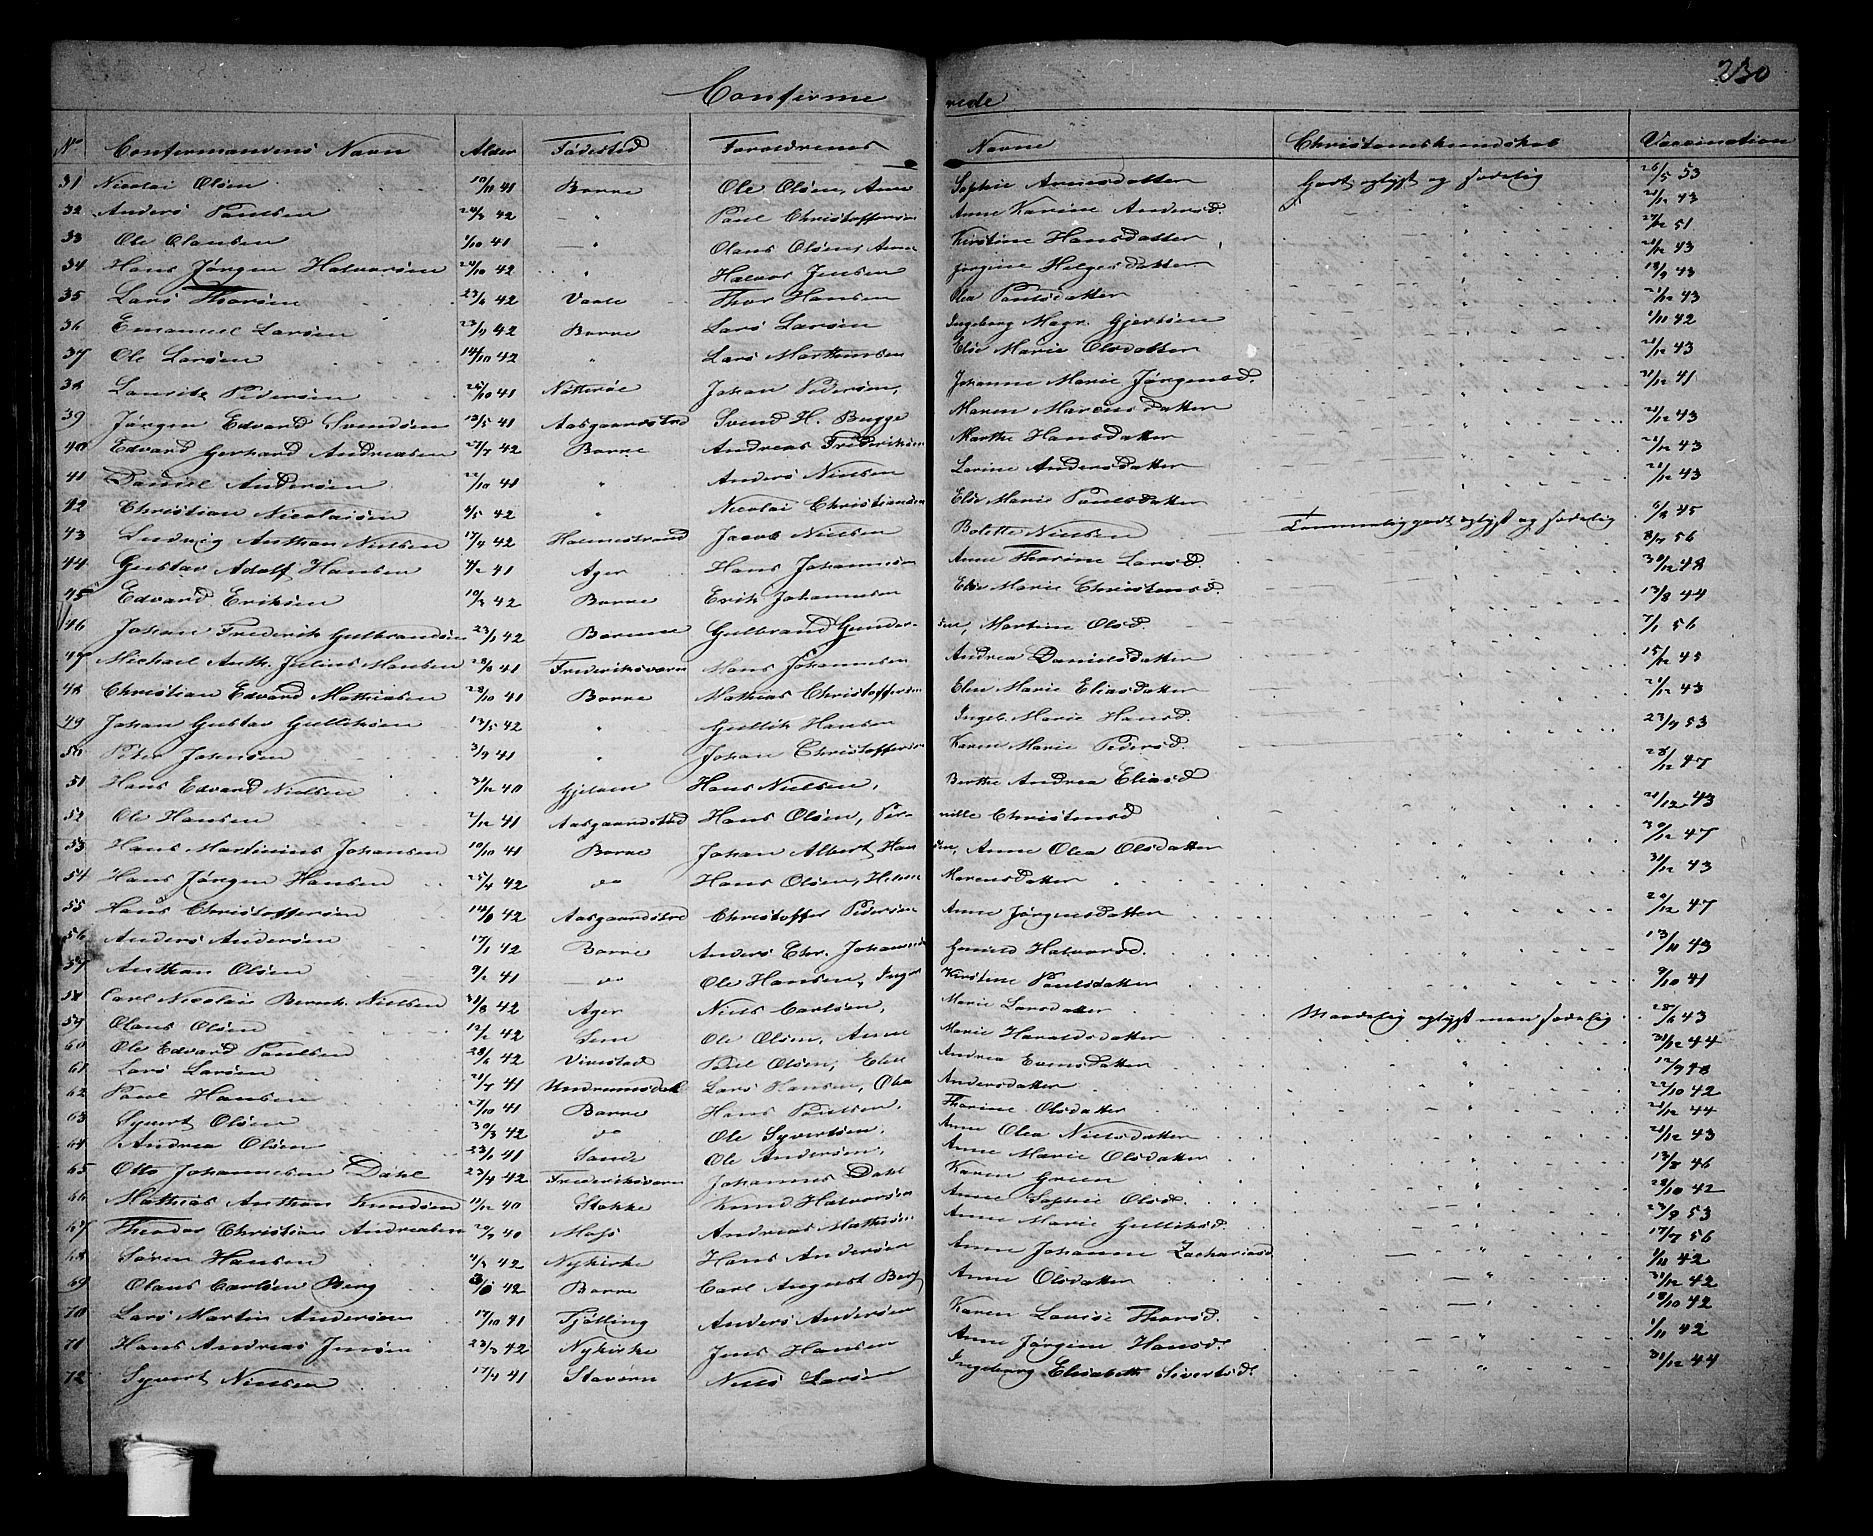 230
Confirme rede
No Confirmandens Navn Alder Fødested Forældrenes Navne Christendomskundskab Vaccination
31 Nicolai Olsen 10/11 41 Borre Ole Olsen, Anne Sophie Arnesdatter Godt oplyst og sædelig 26/5 53
32 Anders Paulsen 24/3 42 " Paul Christoffersen Anne Karine Andersd. " 21/12 43
33 Ole Olausen 1/10 41 " Olaus Olsen, Anne Kirstine Hansdatter " 27/12 51
34 Hans Jørgen Halvorsen 24/10 42 " Halvor Jensen Jørgine Helgesdatter " 21/12 43
35 Lars Thorsen 23/6 42 Vaale Thor Hansen Olea Paulsdatter " 18/9 43
36 Emanuel Larsen 23/9 42 Borre Lars Larsen Ingeborg Magr. Gjertsen " 21/12 43
37 Ole Larsen 14/10 42 " Lars Mathiesen Else Marie Olsdatter " 1/11 42
38 Lauritz Pedersen 26/10 41 Nøtterøe Johan Pedersen, Johanne Marie Jørgensd. " 21/12 43
39 Jørgen Edvard Svendsen 13/5 41 Aasgaardstrd Svend H. Bugge Maren Marensdatter " 21/12 41
40 Edvard Gerhard Andreasen 27/7 42 Borre Andreas Frederiksen Marthe Hansdatter " 21/12 43
41 Daniel Andersen 22/10 41 " Anders Nielsen Larine Andersdatter " 21/12 43
42 Christian Nicolaisen 4/5 42 " Nicolai Christiansen Else Marie Paulsdatter " 21/12 43
43 Ludvig Anthon Nielsen 17/7 42 Holmestrand Jacob Nielsen Bolette Nielsen Temmelig godt oplyst og sædelig 6/8 45
44 Gustav Adolf Hansen 4/2 41 Ager Hans Johannesen Anne Thorine Larsd. " 8/7 56
45 Edvard Eriksen 10/3 42 Borre Erik Johannesen Else Marie Christensd. " 30/12 48
46 Johan Frederik Gulbrandsen 23/1 42 Gulbrand Gunder- sen, Martine Olsd. " 13/8 44
47 Michael Anth. Julius Hansen 28/8 41 Frederiksværn Hans Johannesen Andrea Danielsdatter " 7/1 56
48 Christian Edvard Mathiasen 28/10 41 Borre Mathias Christoffersen Elen Marie Eliasdatter " 15/12 45
49 Johan Gustav Gulliksen 13/5 42 " Gullik Hansen Ingeb. Marie Hansd. " 21/12 43
50 Peter Johansen 3/9 41 " Johan Christoffersen Karen Marie Pedersd. " 23/9 53
51 Hans Edvard Nielsen 31/12 40 Gjelsen Hans Nielsen, Berthe Andrea Eliasd " 28/12 47
52 Ole Hansen 2/12 41 Aasgaardstrd Hans Olsen, Per- nille Christensd " 21/12 43
53 Hans Martinius Johansen 10/10 41 Borre Johan Albert Han sen, Anne Olea Olsdatter " 30/12 47
54 Hans Jørgen Hansen 25/4 42 do Hans Olsen, Helene Marensdatter " 31/12 43
55 Hans Christoffersen 14/6 42 Aasgaardstrd Christoffer Pedersen Anne Jørgensdatter " 20/12 47
56 Anders Andersen 17/1 42 Borre Anders Chr. Johannesen Gunild Halvorsd. " 13/11 43
57 Anthon Olsen 9/2 41 do Ole Hansen, Inger Kirstine Paulsdatter " 9/10 41
58 Carl Nicolai Bernh. Nielsen 31/8 42 Ager Niels Carlsen, Marie Larsdatter Maadelig oplyst men sædelig 28/6 43
59 Olaus Olsen 12/2 42 Sem Ole Olsen, Anne Marie Haraldsdatter " 31/12 44
60 Ole Edvard Paulsen 28/6 42 Vivestad Paul Olsen, Elen Andrea Evensdatter " 12/9 48
61 Lars Larsen 21/7 41 Undrumsdal Lars Hansen, Olea Andersdatter " 22/10 42
62 Paul Hansen 27/10 41 Borre Hans Paulsen, Thorine Olsdatter " 21/12 44
63 Syvert Olsen 30/3 42 do Ole Syvertsen, Anne Olea Nielsdatter " 21/12 43
64 Andrea Olsen 23/1 41 Sande Ole Andersen, Anne Marie Olsdatter " 13/8 46
65 Otto Johannesen Dahl 23/4 42 Frederiksværn Johannes Dahl Karen Green " 28/10 42
66 Mathias Anthon Knudsen 11/12 40 Stokke Knud Halvorsen Anne Sophie Olsd. " 23/9 53
67 Theodor Christian Andreasen 20/9 40 Moss Andreas Mathisen Anne Marie Gulliksd. " 17/7 56
68 Søren Hansen 4/3 42 Nykirke Hans Andersen Anne Johanne Zachariasd " 1/11 42
69 Olaus Carlsen Berg 42 Borre Carl August Berg Anne Olsdatter " 31/12 42
70 Lars Martin Andersen 17/10 41 Tjølling Anders Andersen Karen Lovise Thorsd. " 18/10 42
71 Hans Andreas Jensen 23/3 42 Nykirke Jens Hansen Anne Jørgine Hansd. " 1/11 42
72 Syvert Nielsen 17/7 41 Stavern Niels Larsen Ingeborg Elisabeth Sivertsd. " 31/12 44